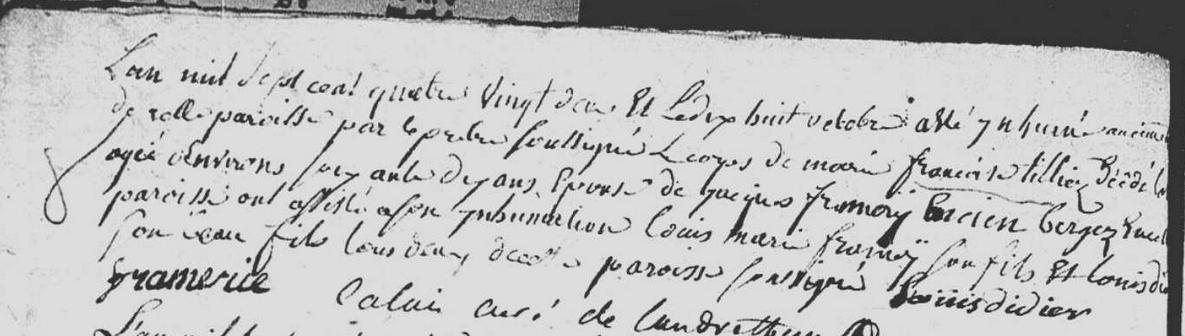 L'an mil sept cent quatre vingt deux Et Le dix huit octobre a Eté ynhumé
de cette paroisse par le pretre soussigné Le corps de marie francoise tilliez décédé
agée d'environs soixante dix ans Epouse de jacques framery ancien berger
paroisse ont assisté a son ynhumation louis marie framery son fils Et louis
son beau fils tous deux de cette paroisse soussigné louis didier
framerice Calais curé de Landrethun
L'an mil